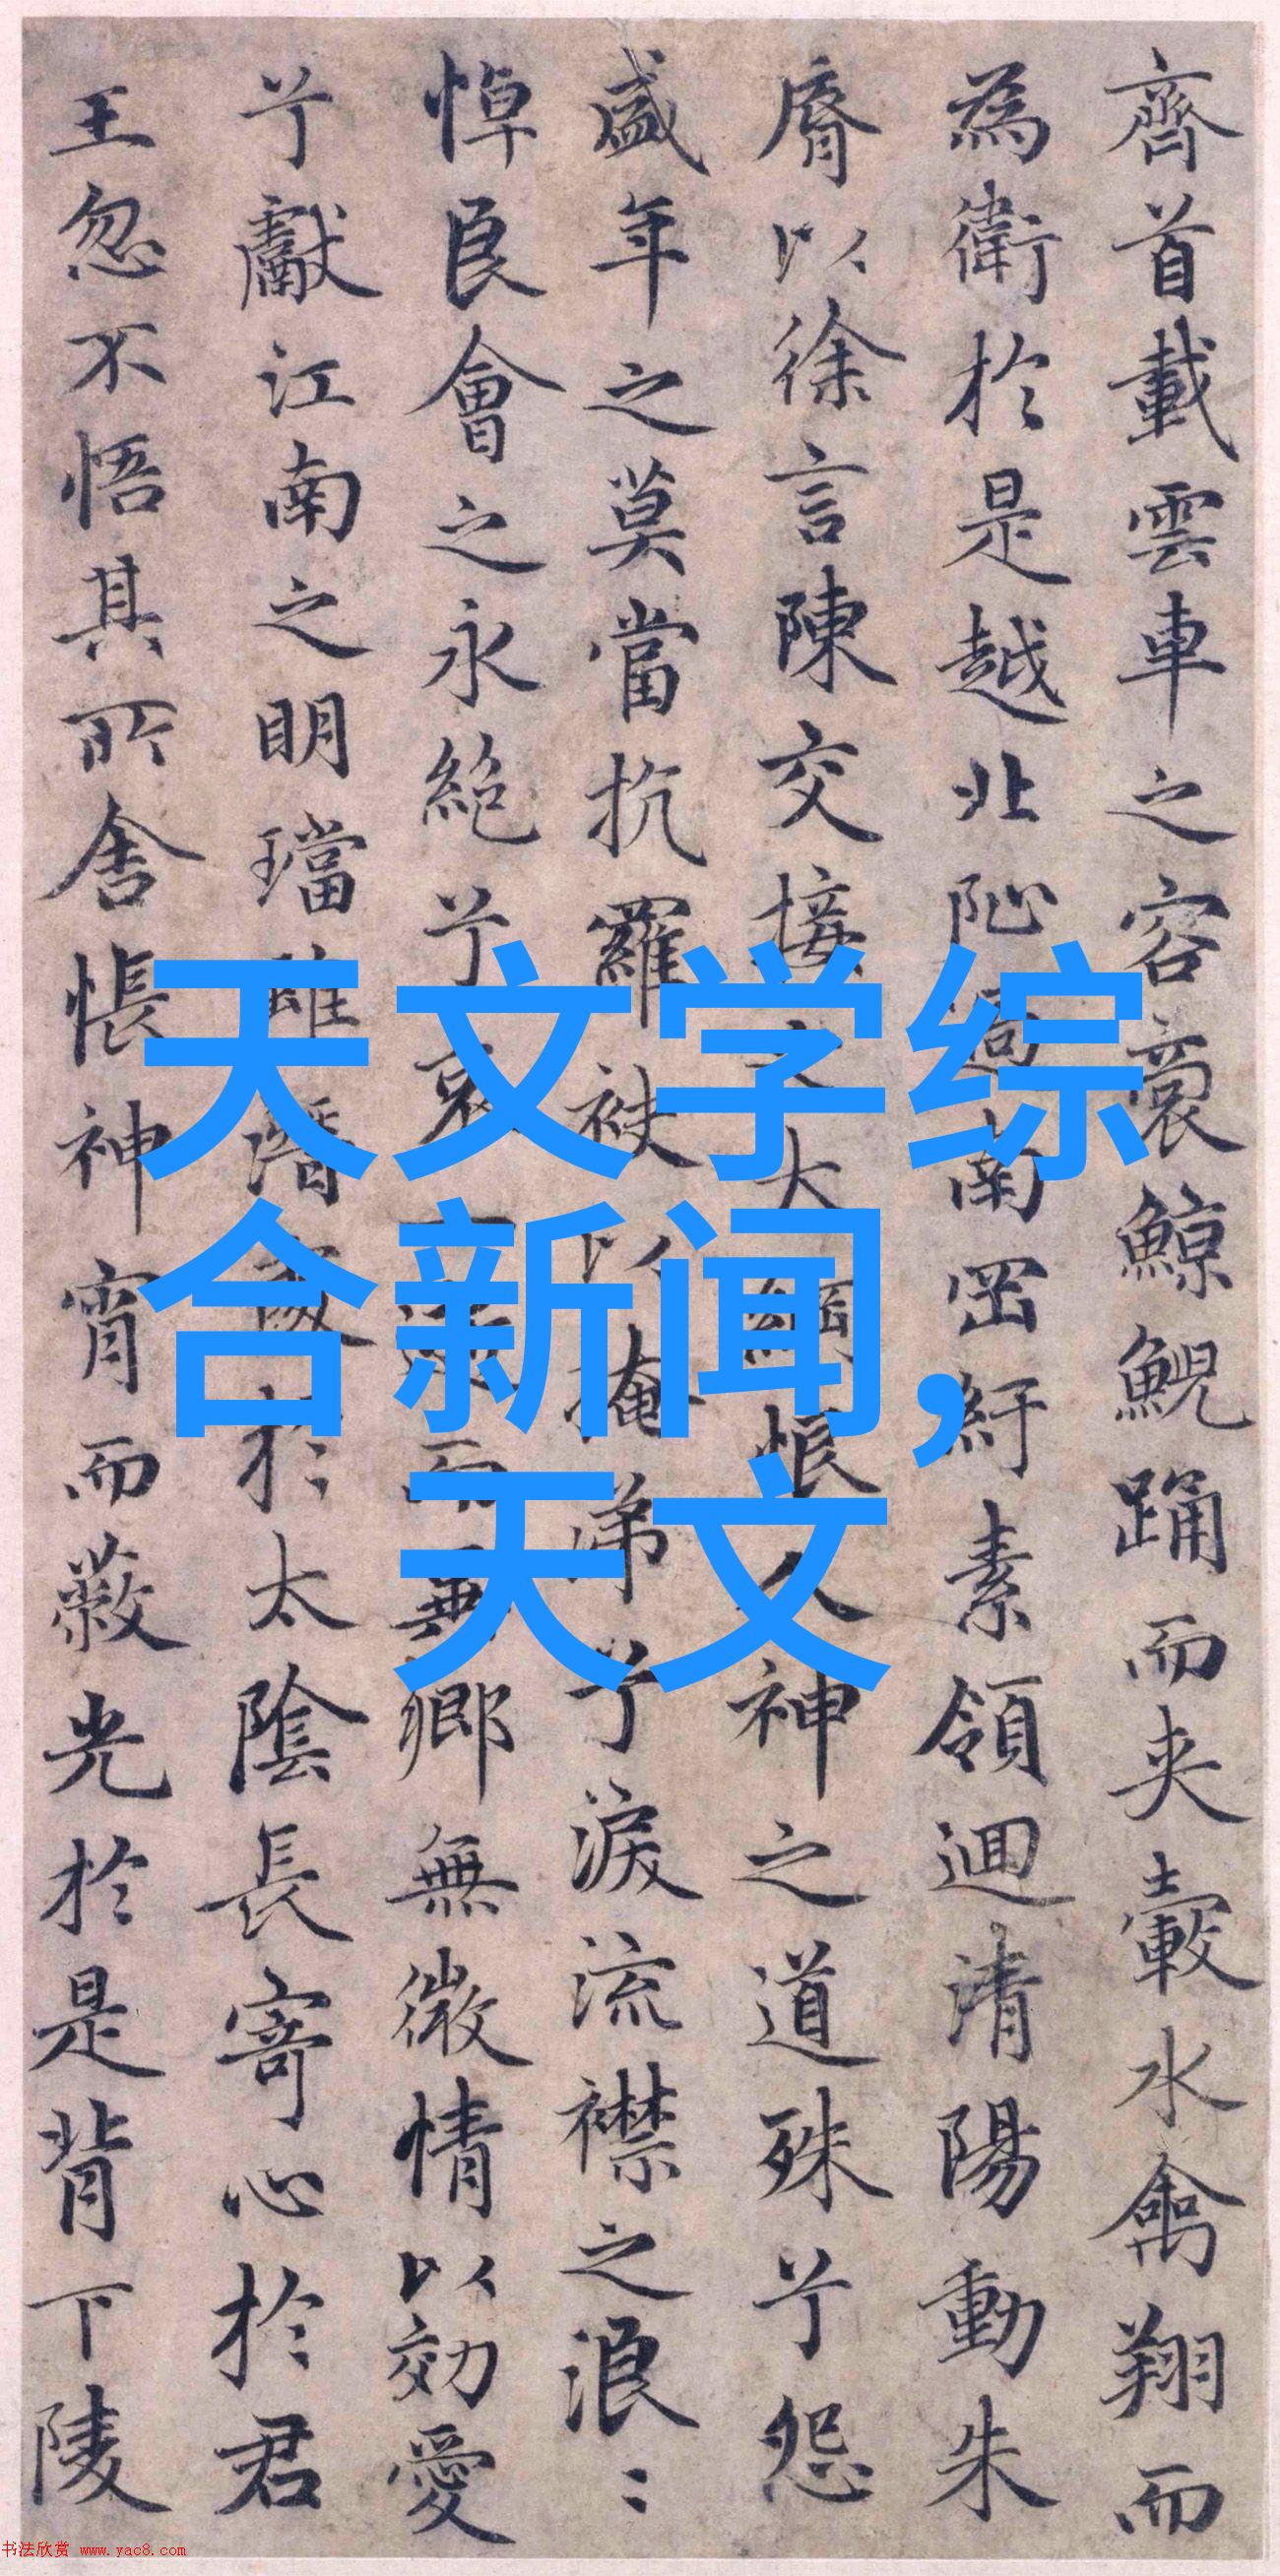 齊首載雲車之容裔鯨鯢踊而夾轂水禽翔而
為衛於是越北沚過南岡紆素領迴清陽動朱
脣以徐言陳交接之大綱恨人神之道殊兮怨
盛年之莫當抗羅袂以掩涕兮淚流襟之浪〻
悼良會之永絕兮哀而鄉無微情以効愛
兮獻江南之明璫雖潛處於太陰長寄心於君
王忽不悟其所舍悵神宵而蔽光於是背下陵
天文学综
合新闻,
天文
书法欣赏 www.yac8.com